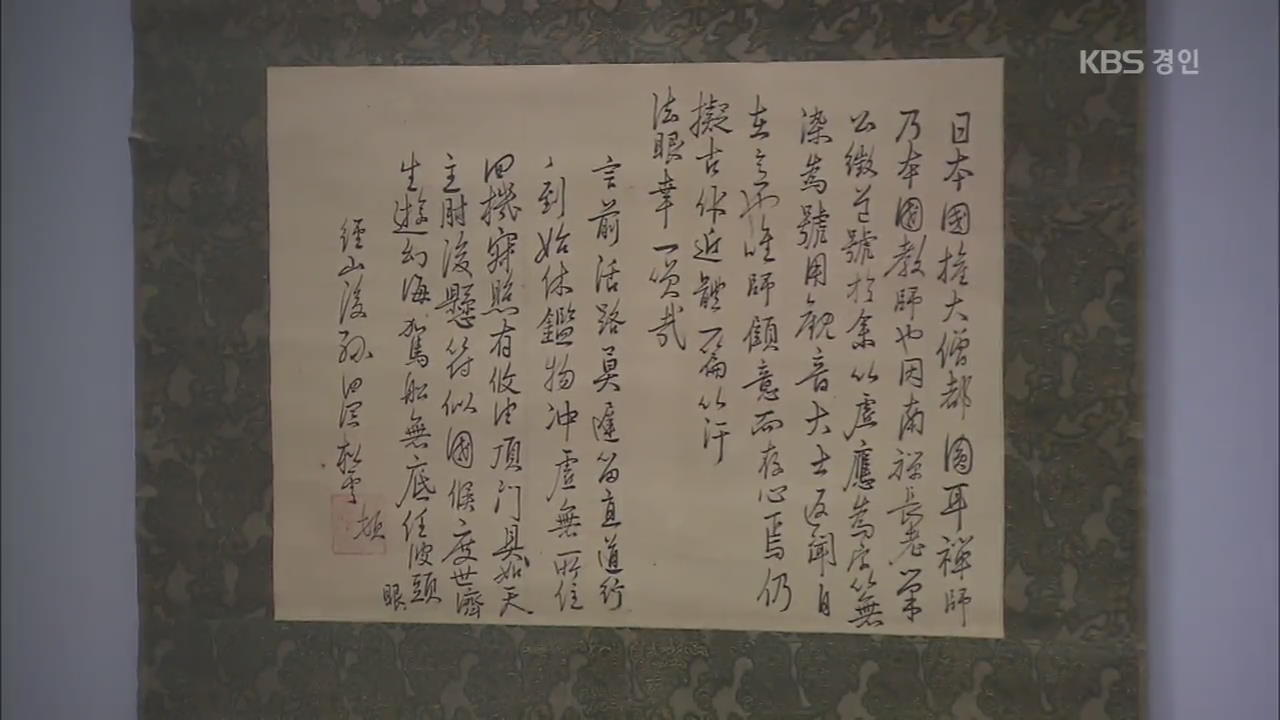 KBS 경인
日本國擔大僧都圓耳禪師
乃本國教師也因南禪長老
公徵道號於余以虛應為字以無
染為號用觀音大士返聞自
在之唯師顧意而存心焉仍
擬古作近體一篇以汙
法眼幸一笑哉
言前活路莫遲留直道行
到始休鑑物冲虛無所住
機寂照有攸頂門具如天
主肘後懸符似國候度世濟
生遊幻海駕船無底任波頭
眼
徑山後孫松雲